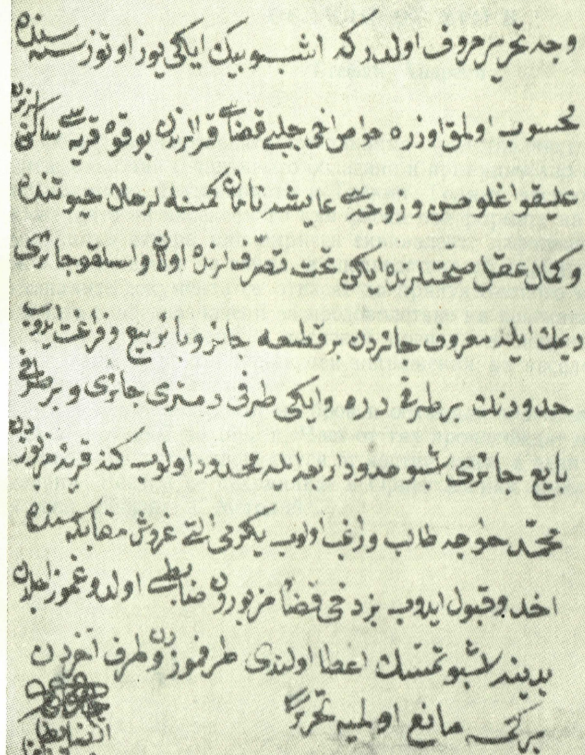 وجه تحرير حروف اولدر كه اشبو بيك ايكى يوز اوتوز سنه سنده
محسوب اولمق اوزره حواصى جلے قضاسى قرالرندن بوقوه قريه سى ساكنلرندن
عليقو اغلو حسن و زوجه سى عايشه نامان كمسنه لر حال حيوتنده
و كمال عقل صحتلرنده ايكى تحت تصرفلرنده اولان واسلقو جائرى
ديمك ايله معروف جائردن بر قطعه جائرو با بيع و فراغت ايدوب
حدودنك بر طرفى دره وايكى طرفى دمترى جائرى و بر طرفى
بايع جائرى اشبو حدود اربعه ايله محدود اولوب كند قريه مزبوردن
محمد خوجه طالب و راغب اولوب يكرمى التى غروش مقابله سنده
اخد و قبول ايدوب بز دخى قضاء مزبورون ضابطى اولدوغموز اجلدن
يدينه اشبو تمسك اعطا اولندى طرفموزدن و طرف اخردن
كمسه مانع اولميه تحريرا